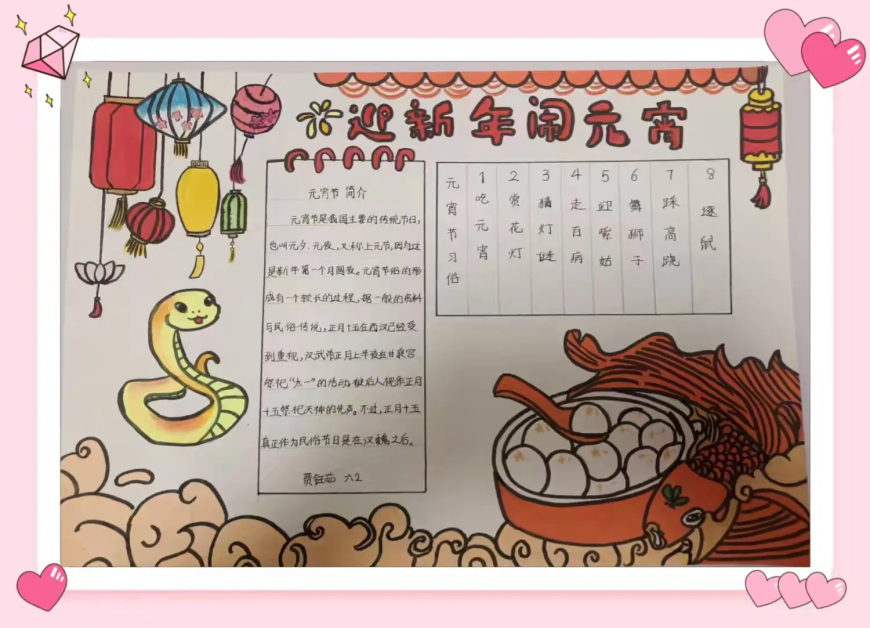 迎新年闹元宵
元宵节 简介
元宵节是我国主要的传统节日,
也叫元夕、元夜,又称上元节,因为这
是新年第一个月圆夜。元宵节俗的形
成有一个较长的过程,据一般的资料
与民俗传说,正月十五在西汉已经受
到重视,汉武帝正月上辛夜在甘泉宫
祭祀“太一”的活动,被后人视作正月
十五祭祀天神的先声。不过,正月十五
真正作为民俗节日是在汉魏之后。
贾钰茹 六2
元宵节习俗
1吃元宵
2赏花灯
3猜灯谜
4走百病
5迎紫姑
6舞狮子
7踩高跷
8逐鼠